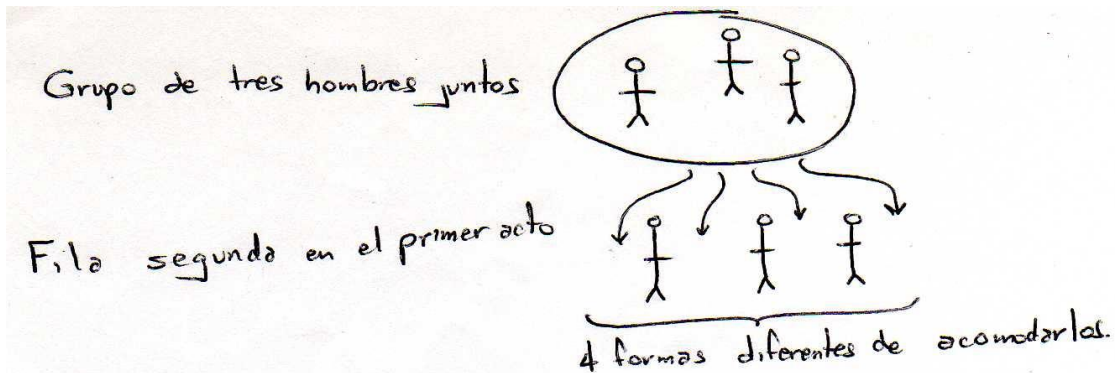 Grupo de tres hombres juntos
Fila segunda en el primer acto
4 formas diferentes de acomodarlos.